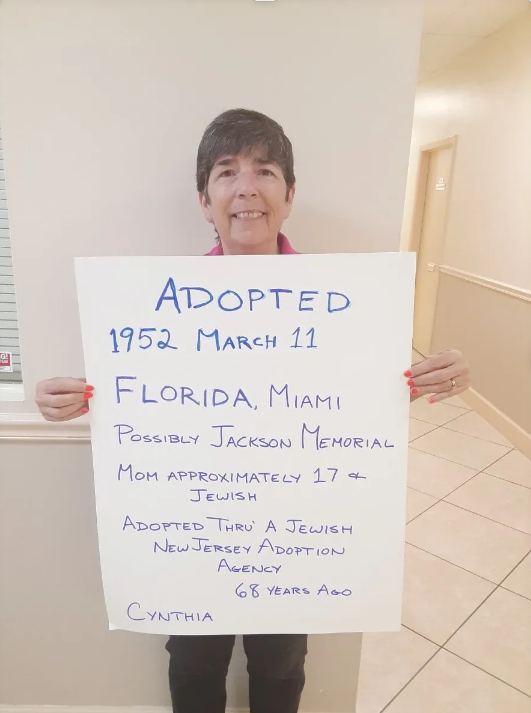 ADOPTED
1952 MARCH 11
FLORIDA, MIAMI
POSSIBLY JACKSON MEMORIAL
MOM APPROXIMATELY 17 &
JEWISH
ADOPTED THRU' A JEWISH
NEW JERSEY ADOPTION
AGENCY
68 YEARS AGO
CYNTHIA